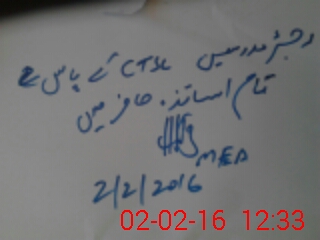 رجسٹر مدرسین CTSC کے پاس ہے
تمام اساتذہ حاضر ہیں
MEA
2/2/2016
02-02-16 12:33